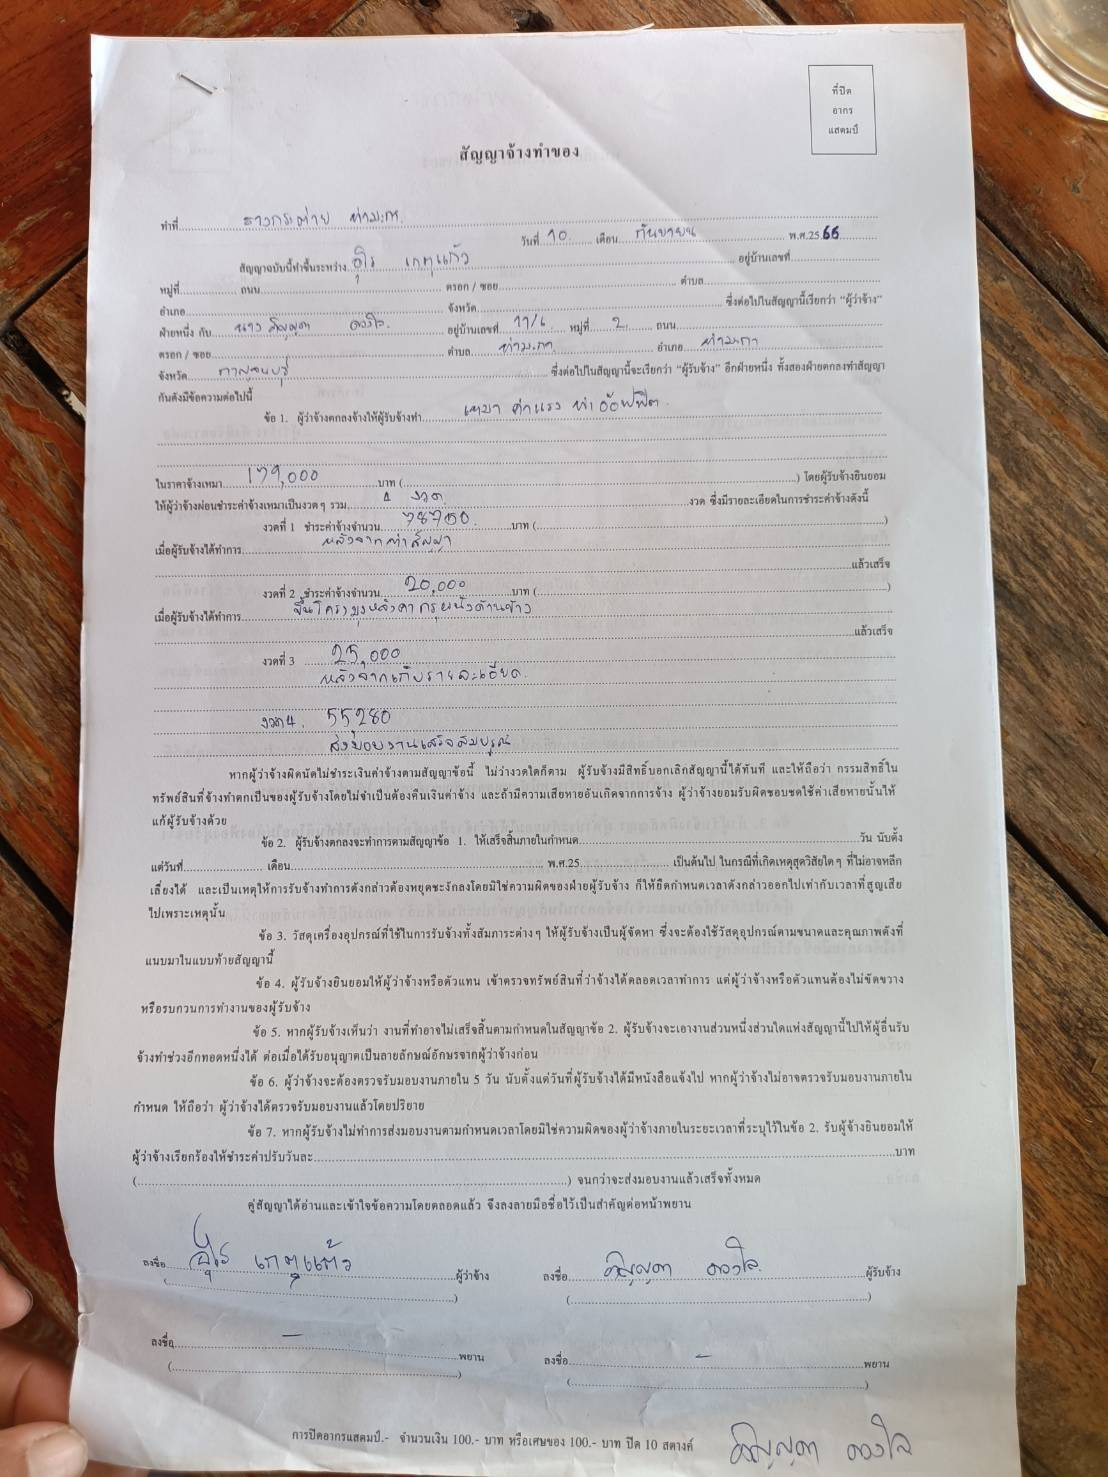 ที่ปิด
อากร
แสตมป์
สัญญาจ้างทำของ
ทำที่ รางกระต่าย ท่ามะกา
วันที่ 10 เดือน กันยายน พ.ศ.2566
สัญญาฉบับนี้ทำขึ้นระหว่าง อุไร เกตุแก้ว อยู่บ้านเลขที่
หมู่ที่ ถนน ตรอก / ซอย ตำบล
อำเภอ จังหวัด ซึ่งต่อไปในสัญญานี้เรียกว่า "ผู้ว่าจ้าง"
ฝ่ายหนึ่ง กับ นาง ดวงใจ อยู่บ้านเลขที่ 11/6 หมู่ที่ 2 ถนน
ตรอก / ซอย ตำบล ท่ามะกา อำเภอ ท่ามะกา
จังหวัด กาญจนบุรี ซึ่งต่อไปในสัญญานี้จะเรียกว่า "ผู้รับจ้าง" อีกฝ่ายหนึ่ง ทั้งสองฝ่ายตกลงทำสัญญา
กันดังมีข้อความต่อไปนี้
ข้อ 1. ผู้ว่าจ้างตกลงจ้างให้ผู้รับจ้างทำ เหมา ค่าแรง ทำ อ๊อฟฟิต
ในราคาจ้างเหมา 179,000 บาท ( ) โดยผู้รับจ้างยินยอม
ให้ผู้ว่าจ้างผ่อนชำระค่าจ้างเหมาเป็นงวดๆ รวม 4 งวด งวด ซึ่งมีรายละเอียดในการชำระค่าจ้างดังนี้
งวดที่ 1 ชำระค่าจ้างจำนวน บาท ( )
เมื่อผู้รับจ้างได้ทำการ หลังจากทำสัญญา
แล้วเสร็จ
งวดที่ 2 ชำระค่าจ้างจำนวน 20,000 บาท ( )
เมื่อผู้รับจ้างได้ทำการ ขึ้นโครงมุงหลังคา กรุผนังด้านข้าง
แล้วเสร็จ
งวดที่ 3 25,000
หลังจากเก็บรายละเอียด
งวด 4. 55,280
ส่งมอบงานเสร็จสมบูรณ์
หากผู้ว่าจ้างผิดนัดไม่ชำระเงินค่าจ้างตามสัญญาข้อนี้ ไม่ว่างวดใดก็ตาม ผู้รับจ้างมีสิทธิ์บอกเลิกสัญญานี้ได้ทันที และให้ถือว่า กรรมสิทธิ์ใน
ทรัพย์สินที่จ้างทำตกเป็นของผู้รับจ้างโดยไม่จำเป็นต้องคืนเงินค่าจ้าง และถ้ามีความเสียหายอันเกิดจากการจ้าง ผู้ว่าจ้างยอมรับผิดชอบชดใช้ค่าเสียหายนั้นให้
แก่ผู้รับจ้างด้วย
ข้อ 2. ผู้รับจ้างตกลงจะทำการตามสัญญาข้อ 1. ให้เสร็จสิ้นภายในกำหนด วัน นับตั้ง
แต่วันที่ เดือน พ.ศ.25 เป็นต้นไป ในกรณีที่เกิดเหตุสุดวิสัยใดๆ ที่ไม่อาจหลีก
เลี่ยงได้ และเป็นเหตุให้การรับจ้างทำการดังกล่าวต้องหยุดชะงักลงโดยมิใช่ความผิดของฝ่ายผู้รับจ้าง ก็ให้ยืดกำหนดเวลาดังกล่าวออกไปเท่ากับเวลาที่สูญเสีย
ไปเพราะเหตุนั้น
ข้อ 3. วัสดุเครื่องอุปกรณ์ที่ใช้ในการรับจ้างทั้งสัมภาระต่างๆ ให้ผู้รับจ้างเป็นผู้จัดหา ซึ่งจะต้องใช้วัสดุอุปกรณ์ตามขนาดและคุณภาพดังที่
แนบมาในแบบท้ายสัญญานี้
ข้อ 4. ผู้รับจ้างยินยอมให้ผู้ว่าจ้างหรือตัวแทน เข้าตรวจทรัพย์สินที่ว่าจ้างได้ตลอดเวลาทำการ แต่ผู้ว่าจ้างหรือตัวแทนต้องไม่ขัดขวาง
หรือรบกวนการทำงานของผู้รับจ้าง
ข้อ 5. หากผู้รับจ้างเห็นว่า งานที่ทำอาจไม่เสร็จสิ้นตามกำหนดในสัญญาข้อ 2. ผู้รับจ้างจะเอางานส่วนหนึ่งส่วนใดแห่งสัญญานี้ไปให้ผู้อื่นรับ
จ้างทำช่วงอีกทอดหนึ่งได้ ต่อเมื่อได้รับอนุญาตเป็นลายลักษณ์อักษรจากผู้ว่าจ้างก่อน
ข้อ 6. ผู้ว่าจ้างจะต้องตรวจรับมอบงานภายใน 5 วัน นับตั้งแต่วันที่ผู้รับจ้างได้มีหนังสือแจ้งไป หากผู้ว่าจ้างไม่อาจตรวจรับมอบงานภายใน
กำหนด ให้ถือว่า ผู้ว่าจ้างได้ตรวจรับมอบงานแล้วโดยปริยาย
ข้อ 7. หากผู้รับจ้างไม่ทำการส่งมอบงานตามกำหนดเวลาโดยมิใช่ความผิดของผู้ว่าจ้างภายในระยะเวลาที่ระบุไว้ในข้อ 2. รับผู้จ้างยินยอมให้
ผู้ว่าจ้างเรียกร้องให้ชำระค่าปรับวันละ บาท
( ) จนกว่าจะส่งมอบงานแล้วเสร็จทั้งหมด
คู่สัญญาได้อ่านและเข้าใจข้อความโดยตลอดแล้ว จึงลงลายมือชื่อไว้เป็นสำคัญต่อหน้าพยาน
ลงชื่อ อุไร เกตุแก้ว ผู้ว่าจ้าง ลงชื่อ ดวงใจ ผู้รับจ้าง
( ) ( )
ลงชื่อ - พยาน ลงชื่อ - พยาน
( ) ( )
การปิดอากรแสตมป์.- จำนวนเงิน 100.- บาท หรือเศษของ 100.- บาท ปิด 10 สตางค์ ดวงใจ